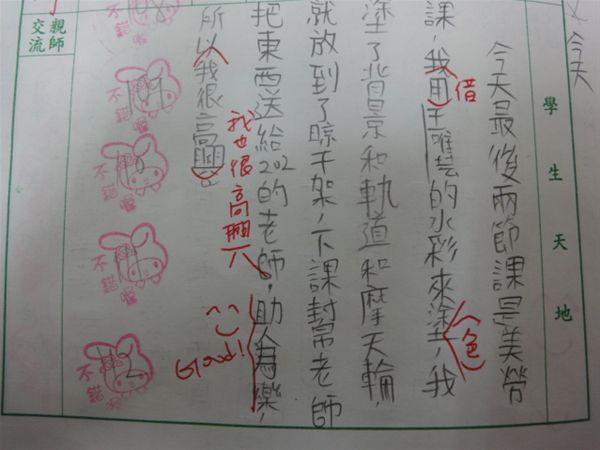 學生天地
今天
今天最後兩節課是美勞
課，我用王唯芸的水彩來塗，我
借
色
塗了背景和軌道和摩天輪，
就放到了晾干架，下課封幫老師
把東西送給202的老師。助為樂，
我也很高興
所以我很高興
Good!
親師交流
不錯喔
不錯喔
不錯喔
不錯